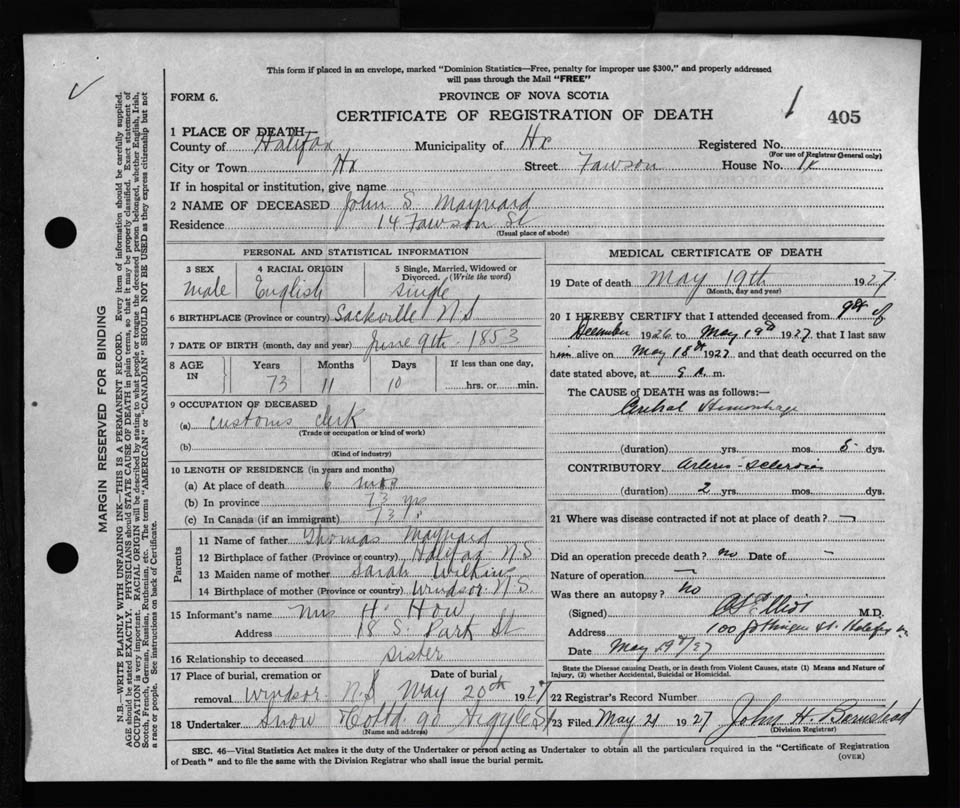 This form if placed in an envelope, marked "Dominion Statistics—Free, penalty for improper use $300," and properly addressed
will pass through the Mail "FREE"
FORM 6.
PROVINCE OF NOVA SCOTIA
CERTIFICATE OF REGISTRATION OF DEATH
1
405
1 PLACE OF DEATH
County of Halifax Municipality of Hx Registered No.
(For use of Registrar General only)
City or Town Hx Street Fawson House No. 14
If in hospital or institution, give name
2 NAME OF DECEASED John S Maynard
Residence 14 Fawson St
(Usual place of abode)
PERSONAL AND STATISTICAL INFORMATION
3 SEX 4 RACIAL ORIGIN 5 Single, Married, Widowed or
Divorced. (Write the word)
male English Single
6 BIRTHPLACE (Province or country) Sackville N.S
7 DATE OF BIRTH (month, day and year) June 9th 1853
8 AGE IN Years Months Days If less than one day,
73 11 10 hrs. or min.
9 OCCUPATION OF DECEASED
(a) customs clerk
(Trade or occupation or kind of work)
(b)
(Kind of industry)
10 LENGTH OF RESIDENCE (in years and months)
(a) At place of death 6 mos
(b) In province 73 yrs
(c) In Canada (if an immigrant) 73
Parents
11 Name of father Thomas Maynard
12 Birthplace of father (Province or country) Halifax N.S
13 Maiden name of mother Sarah Wilkins
14 Birthplace of mother (Province or country) Windsor N.S.
15 Informant's name Mrs H. How
Address 18 S. Park St
16 Relationship to deceased sister
17 Place of burial, cremation or Date of burial
removal Windsor N.S May 20th 1927
18 Undertaker Snow 90 Argyle St
(Name and address)
MEDICAL CERTIFICATE OF DEATH
19 Date of death May 19th 1927
(Month, day and year)
20 I HEREBY CERTIFY that I attended deceased from 9th of
December 1926 to May 19th 1927 that I last saw
him alive on May 18th 1927 and that death occurred on the
date stated above, at 9 a. m.
The CAUSE of DEATH was as follows:—
Cerebral Hemorrhage
(duration) yrs. mos. 5 dys.
CONTRIBUTORY Arterio-sclerosis
(duration) 2 yrs. mos. dys.
21 Where was disease contracted if not at place of death? —
Did an operation precede death? no Date of —
Nature of operation —
Was there an autopsy? no
(Signed) Elliot M.D.
Address 100 St. Halifax
Date May 19th/27
State the Disease causing Death, or in death from Violent Causes, state (1) Means and Nature of
Injury, (2) whether Accidental, Suicidal or Homicidal.
22 Registrar's Record Number
23 Filed May 21 1927 John H. Barnstead
(Division Registrar)
SEC. 46—Vital Statistics Act makes it the duty of the Undertaker or person acting as Undertaker to obtain all the particulars required in the "Certificate of Registration
of Death" and to file the same with the Division Registrar who shall issue the burial permit.
(OVER)
MARGIN RESERVED FOR BINDING
N.B.—WRITE PLAINLY WITH UNFADING INK—THIS IS A PERMANENT RECORD. Every item of information should be carefully supplied.
AGE should be stated EXACTLY. PHYSICIANS should STATE CAUSE OF DEATH in plain terms, so that it may be properly classified. Exact statement of
OCCUPATION is very important. RACIAL ORIGIN will be described by stating to what people or tongue the deceased person belonged, whether English, Irish,
Scotch, French, German, Russian, Ruthenian, etc. The terms "AMERICAN" or "CANADIAN" SHOULD NOT BE USED as they express citizenship but not
a race or people. See instructions on back of Certificate.